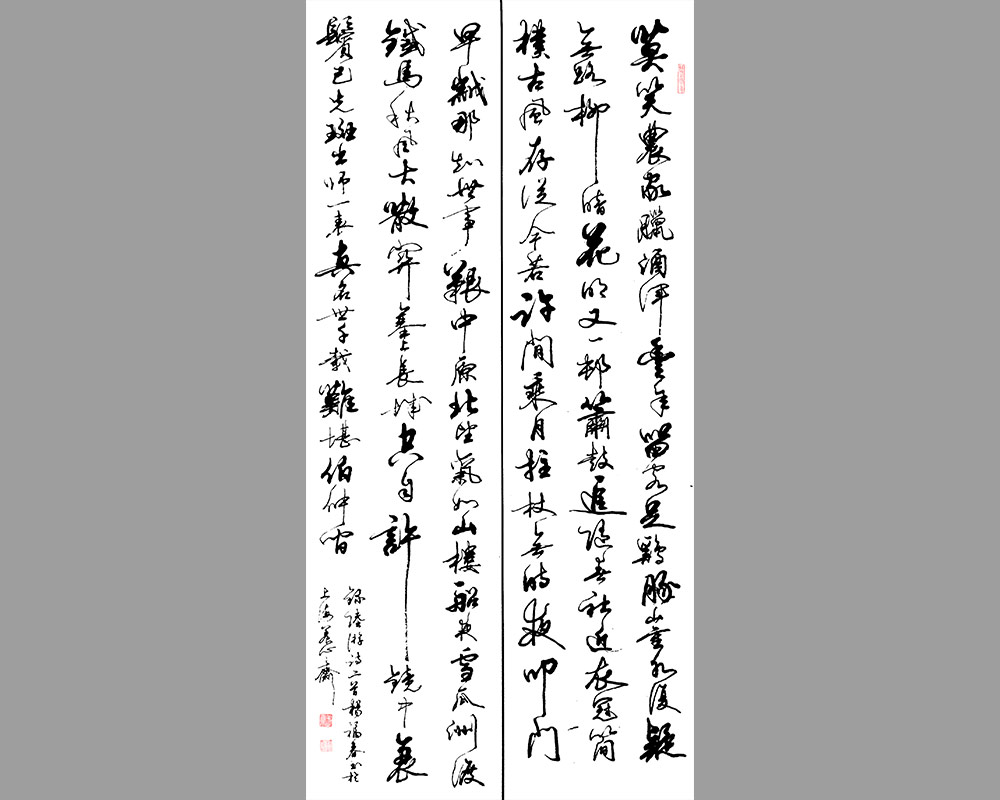 莫笑農家臘酒渾豐年留客足雞豚山重水復疑
無路柳暗花明又一邨簫鼓追隨春社近衣冠簡
樸古風存從今若許閒乘月拄杖無時夜叩門
早歲那知世事艱中原北望氣如山樓船夜雪瓜洲渡
鐵馬秋風大散關塞上長城空自許鏡中衰
鬢已先斑出師一表真名世千載難堪伯仲間
錄陸游詩二首楊福春書於
上海養心齋